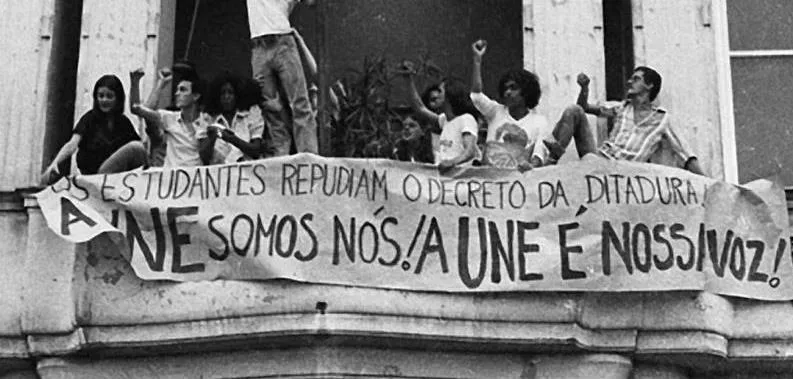 OS ESTUDANTES REPUDIAM O DECRETO DA DITADURA!
A UNE SOMOS NÓS! A UNE É NOSSA VOZ!